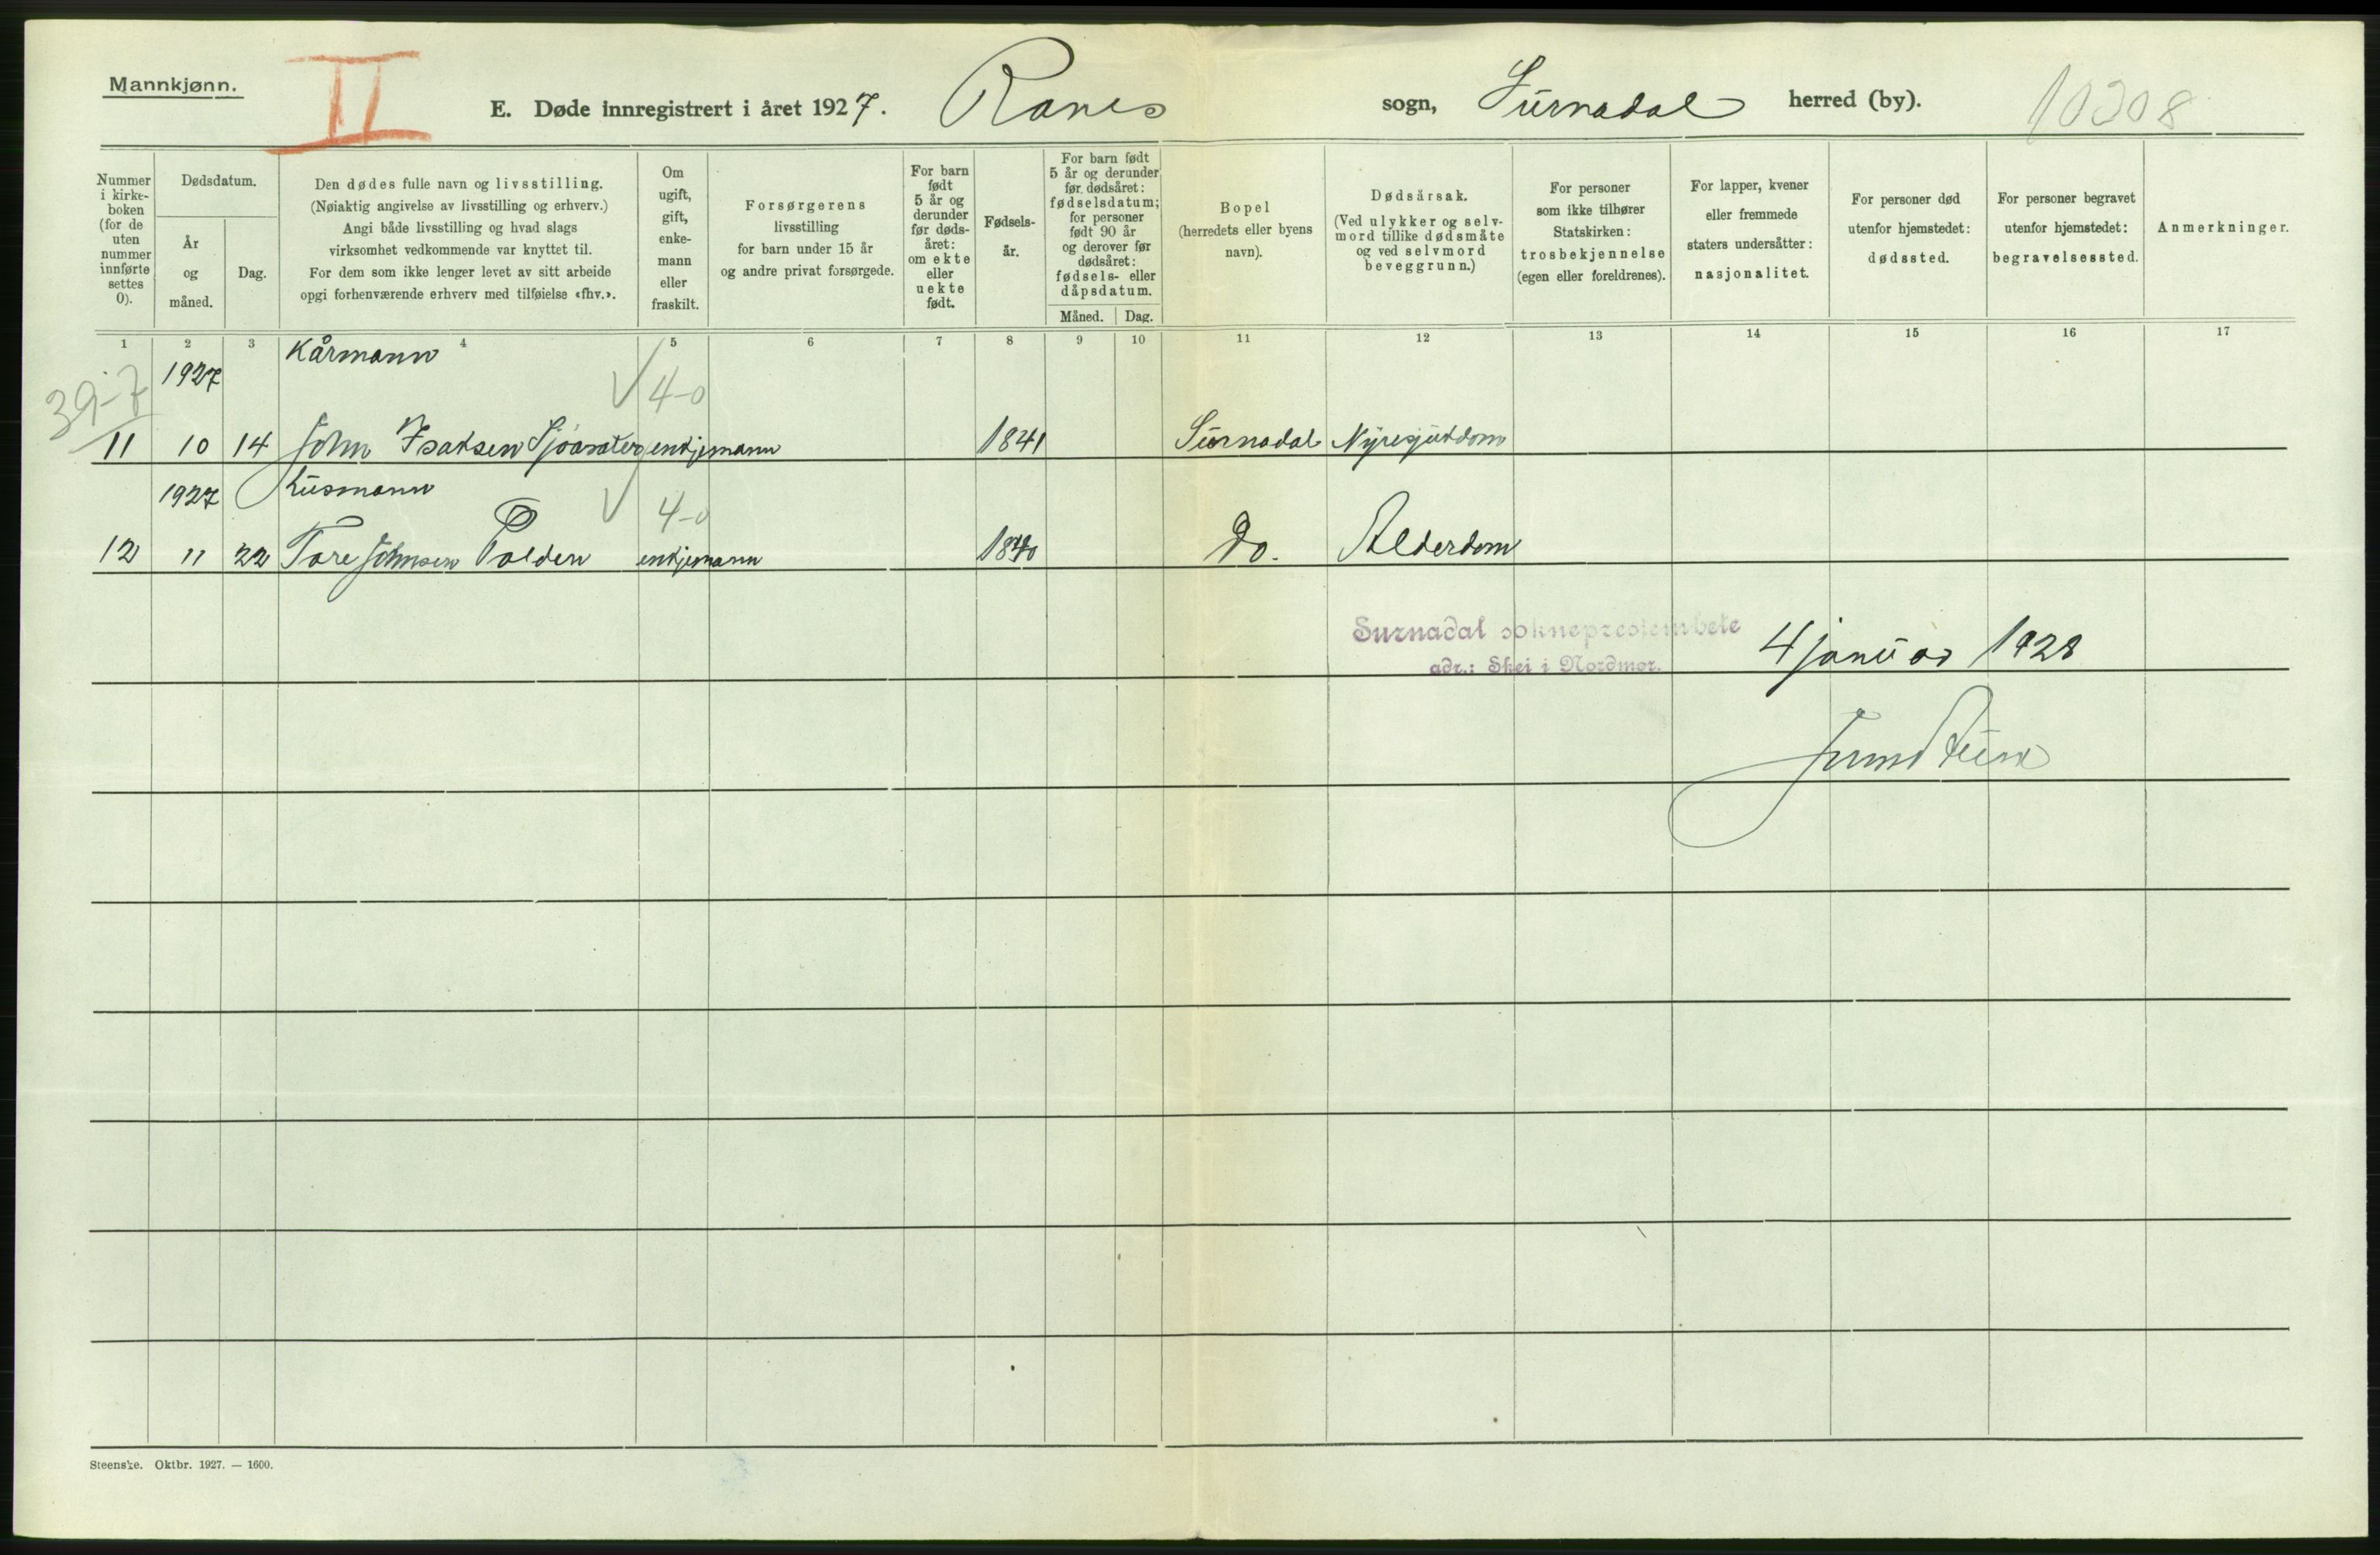 Mannkjønn.
II
E. Døde innregistrert i året 1927. Ranes sogn, Surnadal herred (by). 10308
Nummer i kirke-boken (for de uten nummer innførte settes 0).
Dødsdatum.
År og måned.
Dag.
Den dødes fulle navn og livsstilling.
(Nøiaktig angivelse av livsstilling og erhverv.)
Angi både livsstilling og hvad slags
virksomhet vedkommende var knyttet til.
For dem som ikke lenger levet av sitt arbeide
opgi forhenværende erhverv med tilføielse «fhv.».
Om ugift, gift, enke-mann eller fraskilt.
Forsørgerens
livsstilling
for barn under 15 år
og andre privat forsørgede.
For barn født 5 år og derunder før døds-året: om ekte eller uekte født.
Fødsels-år.
For barn født 5 år og derunder før dødsåret: fødselsdatum; for personer født 90 år og derover før dødsåret: fødsels- eller dåpsdatum.
Måned.
Dag.
Bopel
(herredets eller byens
navn).
Dødsårsak.
(Ved ulykker og selv-
mord tillike dødsmåte
og ved selvmord
beveggrunn.)
For personer
som ikke tilhører
Statskirken:
trosbekjennelse
(egen eller foreldrenes).
For lapper, kvener
eller fremmede
staters undersåtter:
nasjonalitet.
For personer død
utenfor hjemstedet:
dødssted.
For personer begravet
utenfor hjemstedet:
begravelsessted.
Anmerkninger.
1 2 3 4 5 6 7 8 9 10 11 12 13 14 15 16 17
39-7
1927 Kårmann 4-0
11 10 14 John Isaksen Sjøaseter enkjemann 1841 Surnadal Nyresjukdom
1927 Husmann 4-0
12 11 22 Tore Johnsen Polden enkjemann 1840 Do. Alderdom
Surnadal sokneprestembete
adr.: Skei i Nordmør.
4 januar 1928
Steenske. Oktbr. 1927. — 1600.